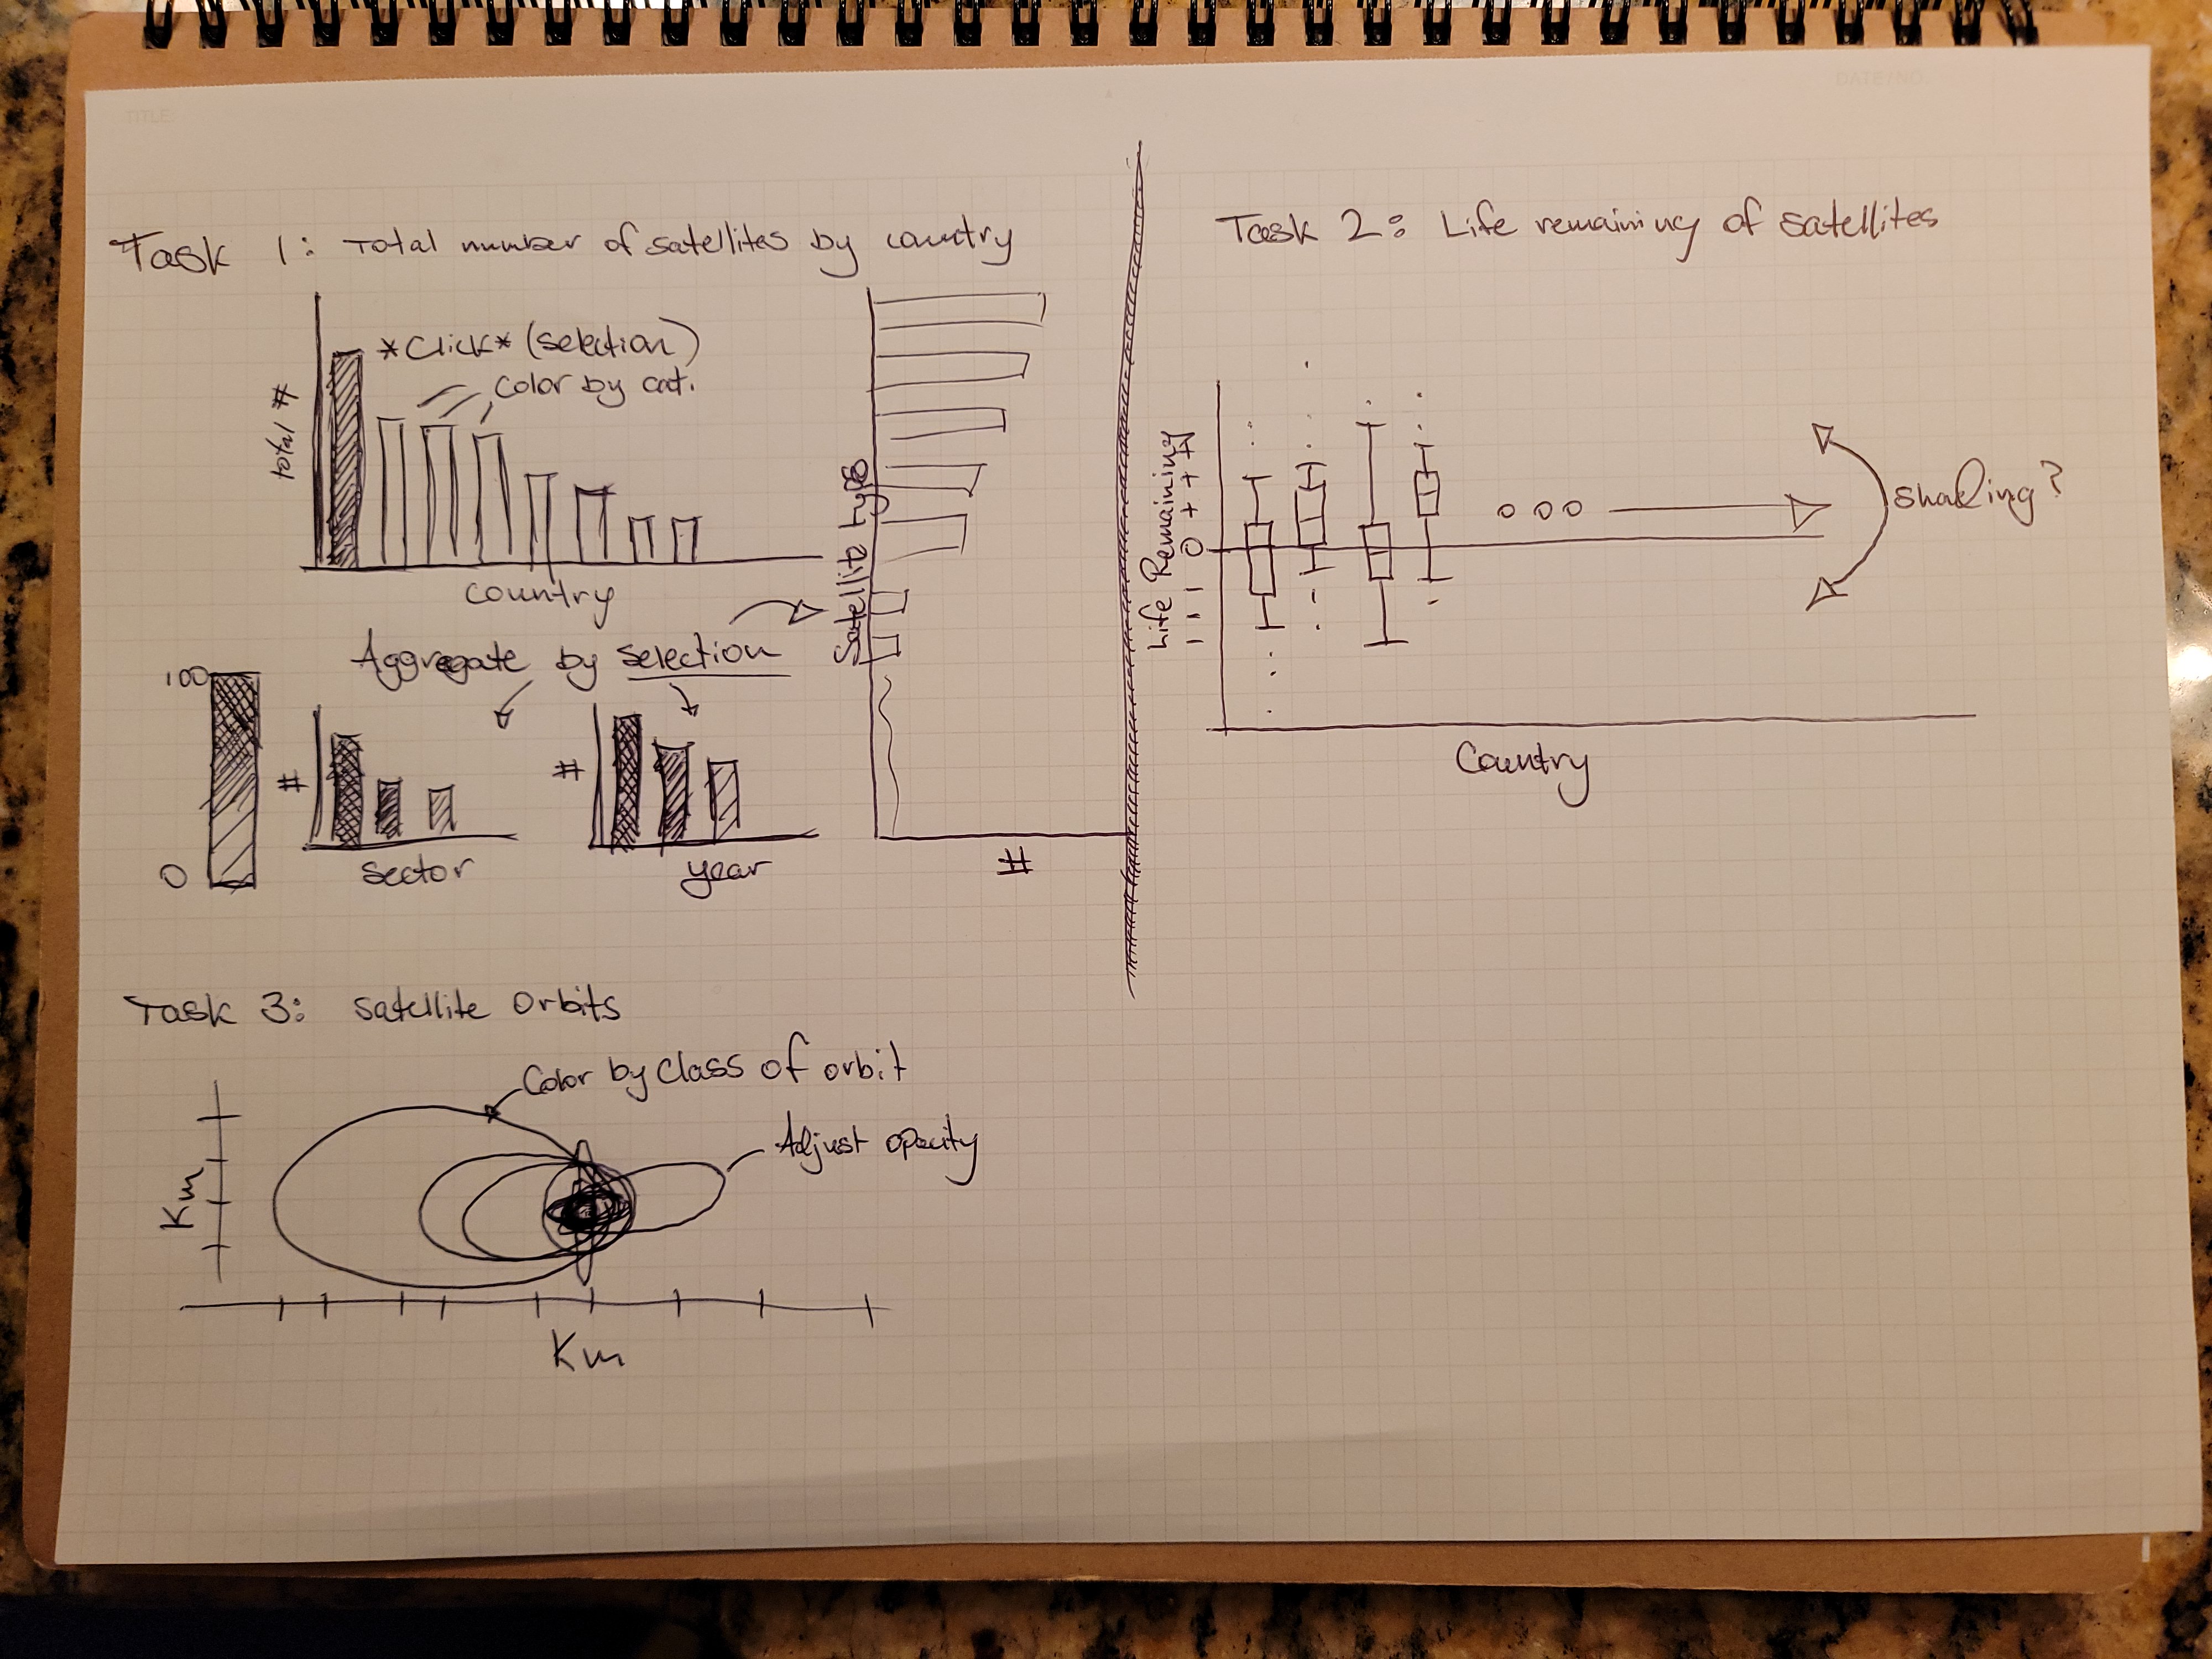 TITLE
DATE/NO.
Task 1: Total number of satellites by country
*Click* (selection)
Color by cat.
total #
Country
Aggregate by selection
100
0
#
sector
#
year
Satellite type
#
Task 2: Life remaining of satellites
Life Remaining
- - - 0 + + + +
shading?
Country
Task 3: Satellite Orbits
Color by Class of orbit
Adjust opacity
Km
Km